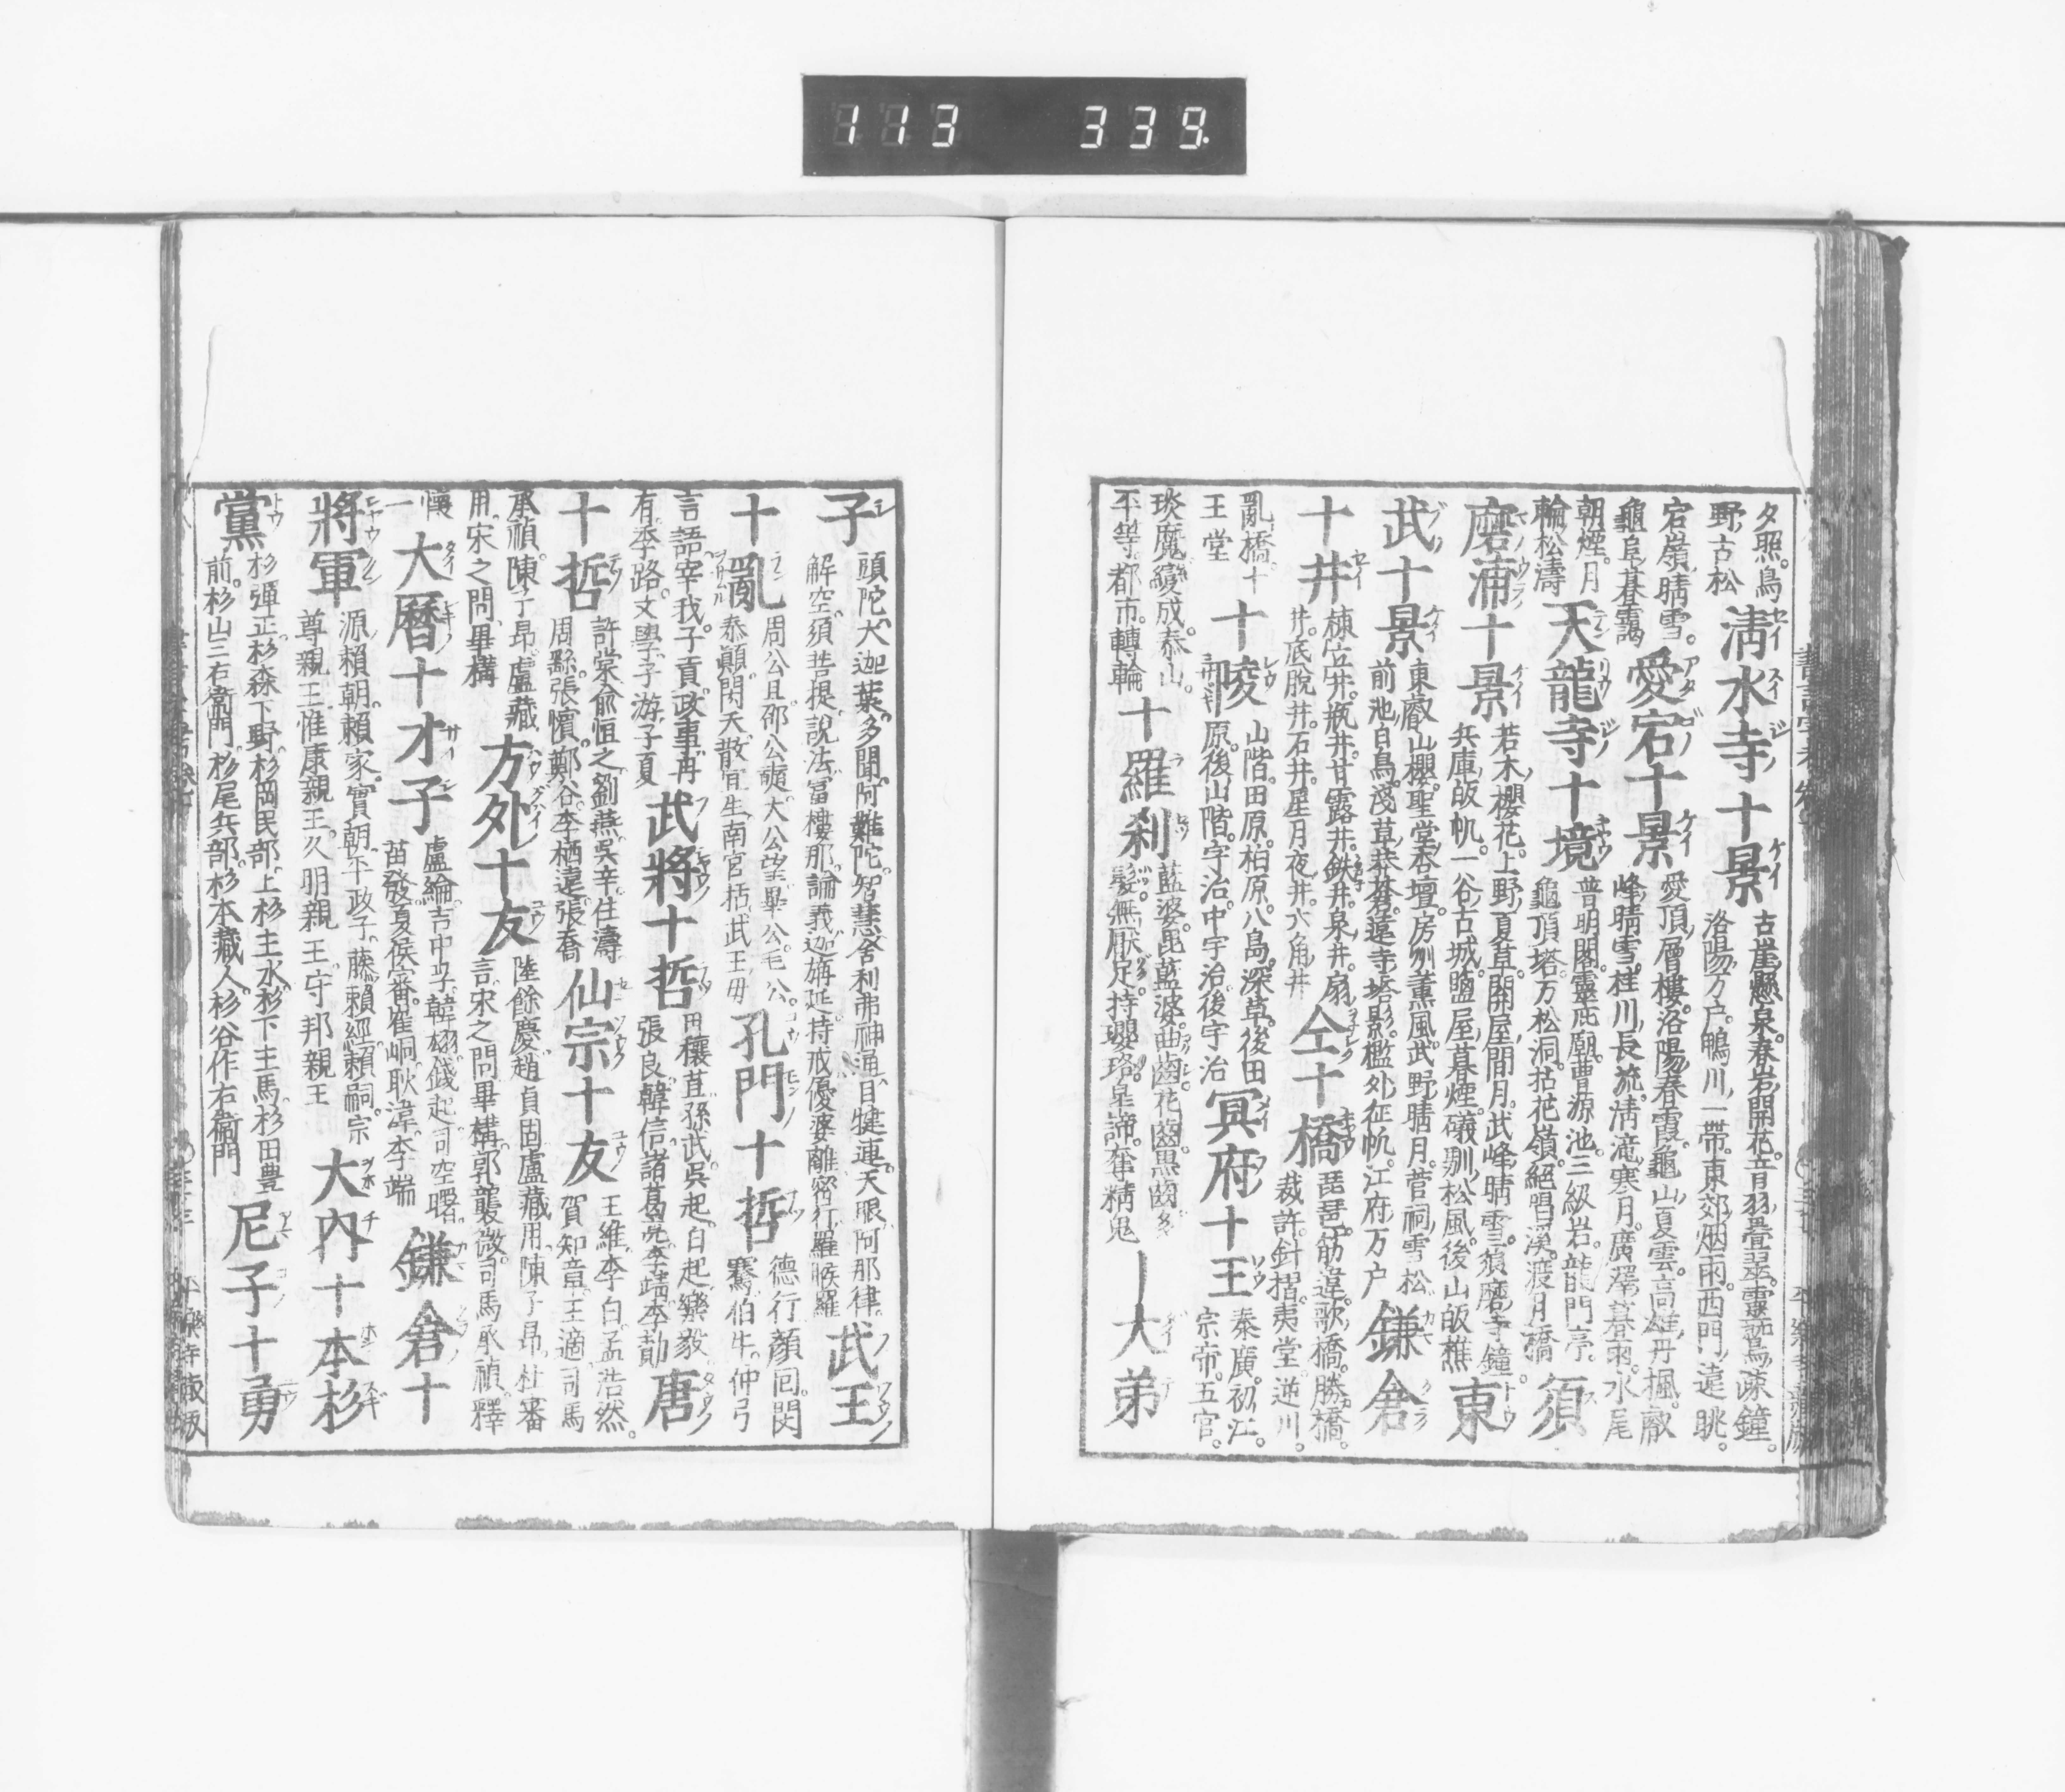 113 339
夕照。鳥
野古松
清水寺十景
古崖懸泉。春岩開花。音羽畳翠。靈鷲疎鐘。
洛陽万戸。鴨川一帶。東郊烟雨。西門遠眺。
宕嶺晴雪。
龜阜暮靄
愛宕十景
愛頂層樓。洛陽春霞。龜山夏雲。高雄丹楓。
峰晴雪。桂川長流。清滝寒月。廣澤
朝煙。月
輪松濤
天龍寺十境
普明閣。靈庇廟。曹源池。三級岩。龍門亭。
龜頂塔。万松洞。拈花嶺。絕唱溪。渡月橋
須
磨浦十景
若木櫻花。上野夏草。關屋間月。武峰晴雪。須磨寺鐘。
兵庫皈帆。一谷古城。鹽屋暮煙。磯馴松風。後山皈樵
東
武十景
東叡山櫻。聖堂杏壇。房州薫風。武野晴月。菅祠雪松
前池白鳥。淺草
江府万戸
鎌倉
十井
棟立井。瓶井。甘露井。鉄井。泉井。扇
井。底脱井。石井。星月夜井。六角井
仝十橋
琵琶。筋違。歌橋。勝橋。
裁許。針摺。夷堂。逆川。
亂橋。十
王堂
十陵
山階。田原。柏原。八島。深草。後田
原。後山階。宇治。中宇治。後宇治
冥府十王
秦廣。初江。
宗帝。五官。
琰魔。變成。泰山。
平等。都市。轉輪
十羅刹
藍婆。毘藍婆。曲齒。花齒。黒齒。多
髮。無厭足。持瓔珞。皐諦。奪精鬼
｜大弟
子
頭陀大迦葉。多聞阿難陀。智慧舍利弗。神通目犍連。天眼阿那律。
解空須菩提。說法冨樓那。論義迦旃延。持戒優婆離。密行羅睺羅
武王
十亂
周公旦。邵公奭。大公望。畢公。毛公。
泰顚。閎夭。散宜生。南宮括。武王毋
孔門十哲
德行顏回。閔
騫。伯牛。仲弓
言語宰我。子貢。政事冉
有。季路。文學子游。子夏
武將十哲
田穰苴。孫武。吳起。白起。樂毅。
張良。韓信。諸葛亮。李靖。李勣
唐
十哲
許棠。兪恒之。劉燕。吳辛。任濤
周繇。張濱。鄭谷。李栖遠。張喬
仙宗十友
王維。李白。孟浩然。
賀知章。王適。司馬
承禎。陳子昂。盧藏
用。宋之問。畢構
方外十友
陸餘慶。趙貞固。盧藏用。陳子昂。杜審
言。宋之問。畢構。郭襲微。司馬承禎。釋
懷
一
大暦十才子
盧綸。吉中孚。韓翃。錢起。司空曙。
苗發。夏侯審。崔峒。耿湋。李端
鎌倉十
將軍
源賴朝。賴家。實朝。平政子。藤賴經。賴嗣。宗
尊親王。惟康親王。久明親王。守邦親王
大內十本杉
黨
杉彈正。杉森下野。杉岡民部。上杉主水。杉下主馬。杉田豊
前。杉山三右衛門。杉尾兵部。杉本藏人。杉谷作右衛門
尼子十勇